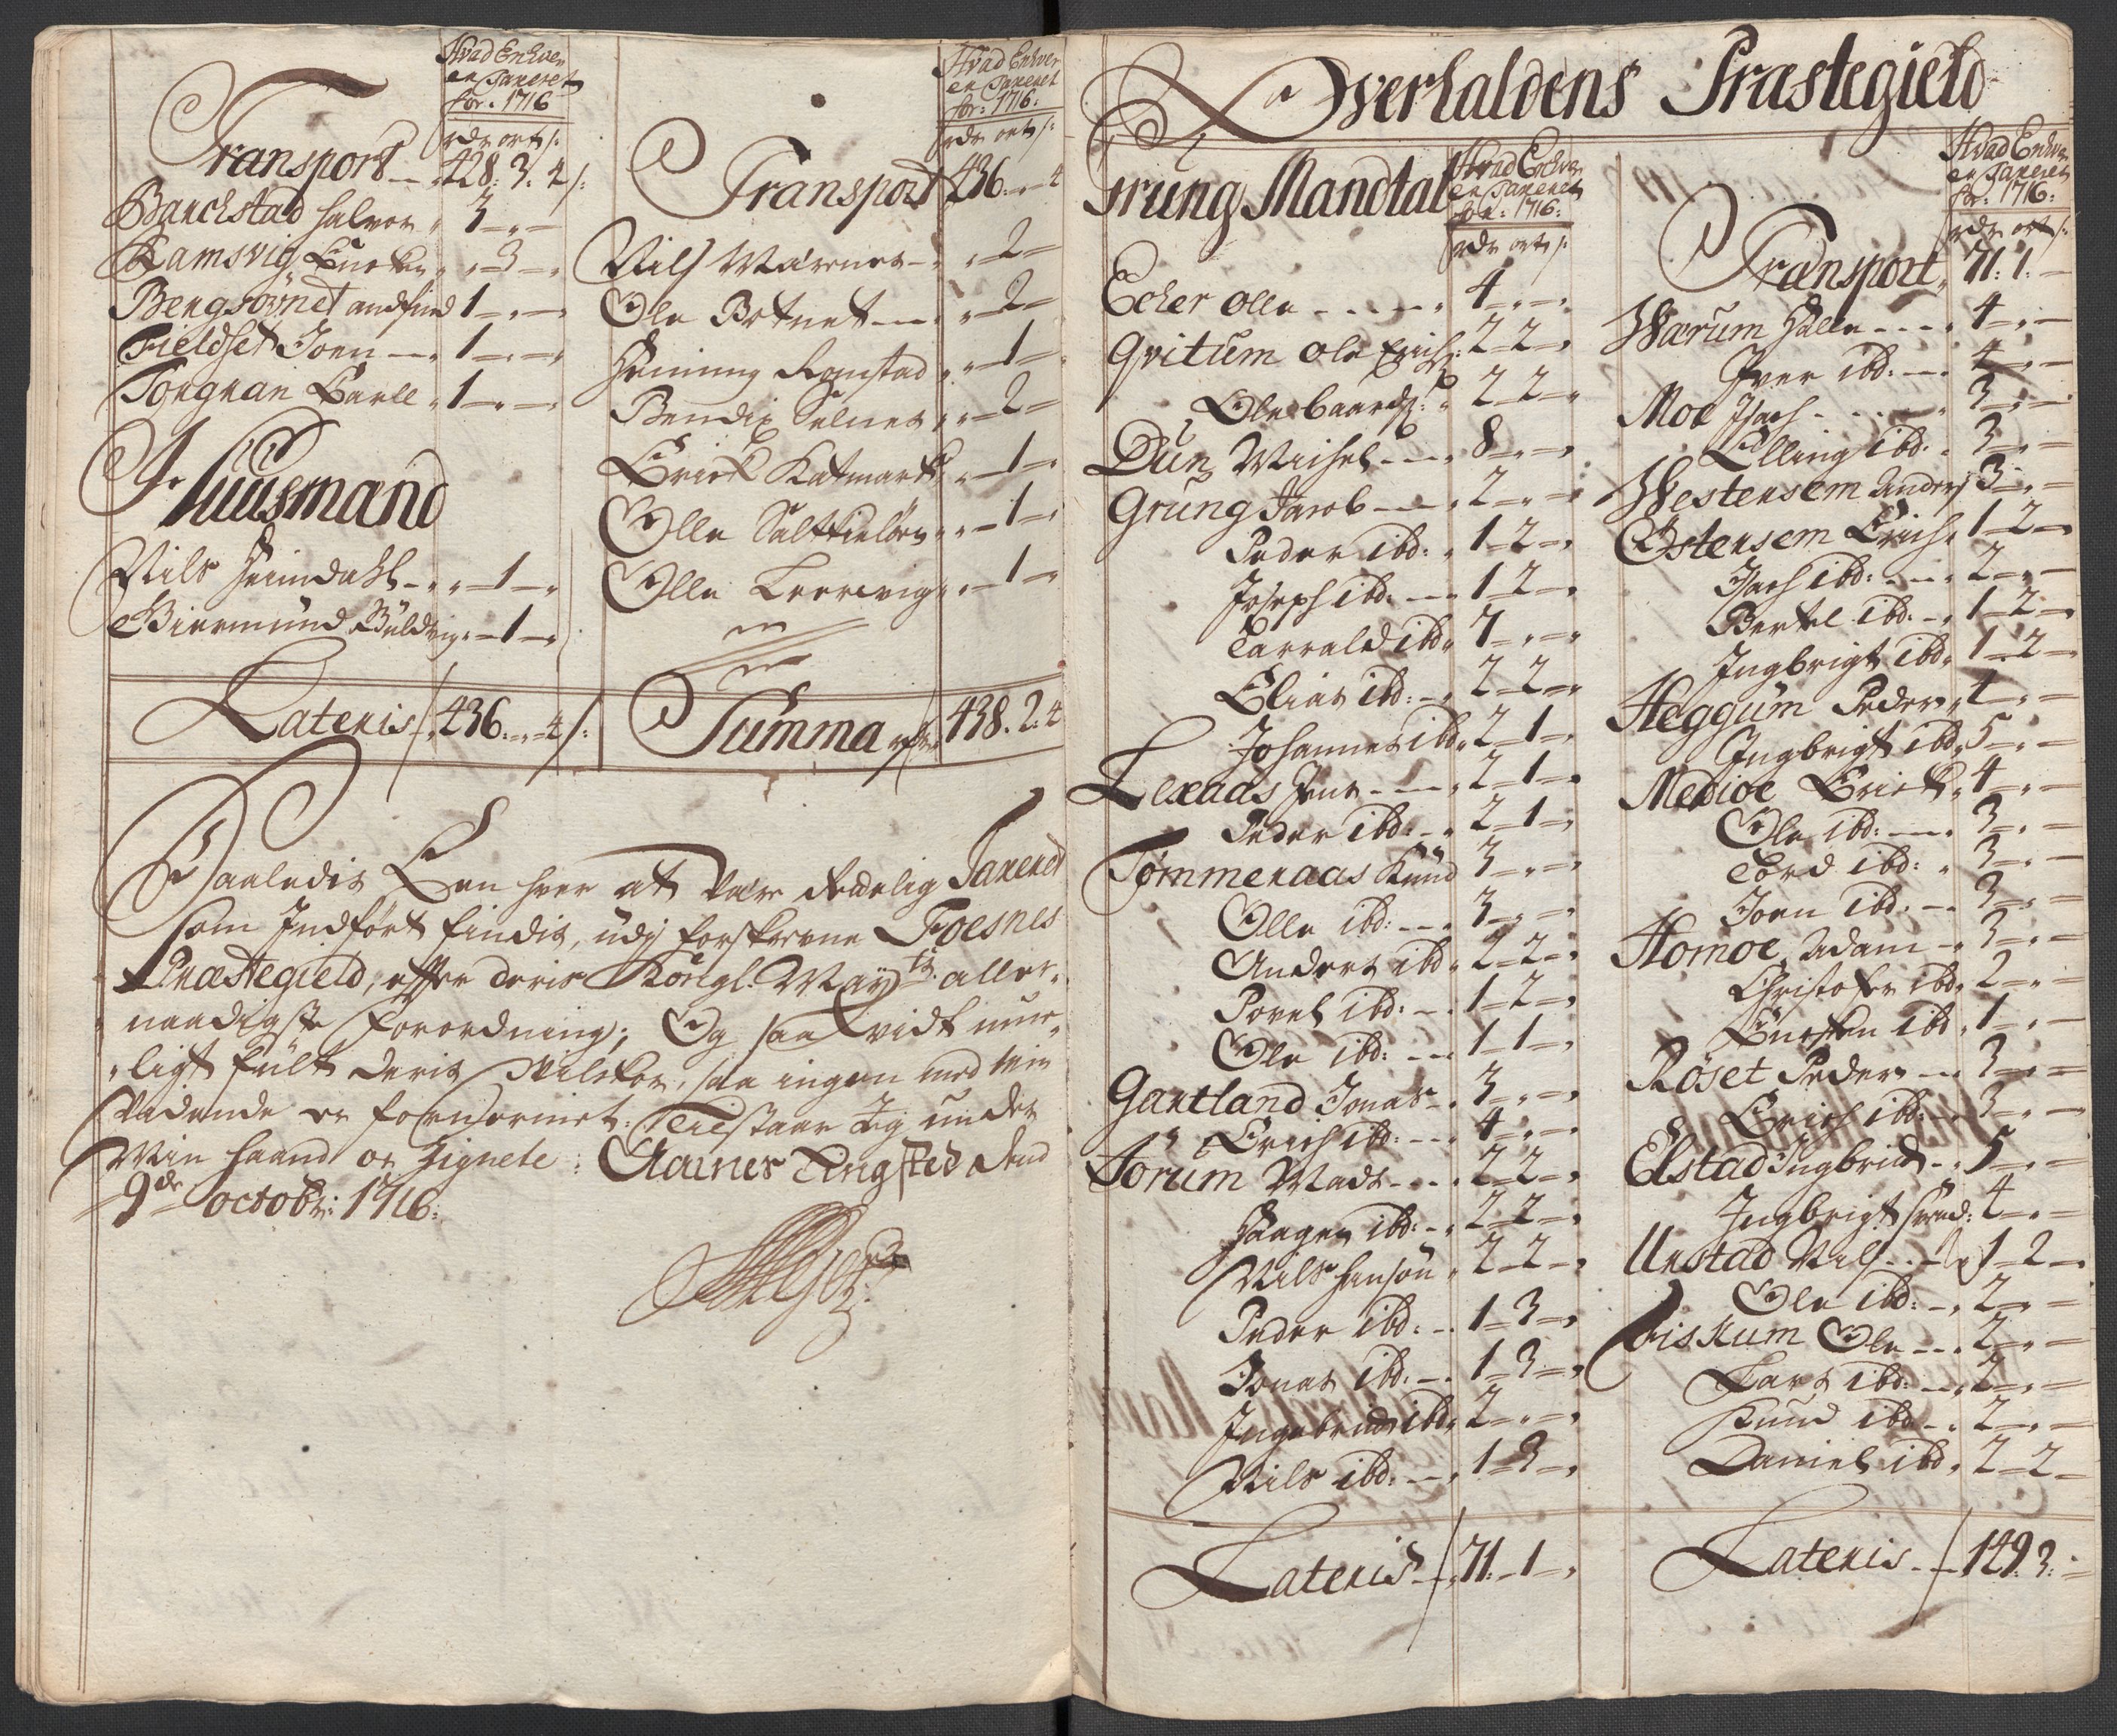 Hvad Enhver
er Taxeret
for: 1716
rdr ort s:
Transport 428: 3: 4 s:
Banchstad Halvor 3 " "
Ramsvig " 3 "
Bengsövnet 1 " "
Fieldset Joen 1 " "
Tongnan 1 " "
Huusmænd
Nils Heimdahl " 1 "
" 1 "
Lateris 436: " 4 s:
Hvad Enhver
er Taxeret
for: 1716:
rdr ort s:
Transport 436: " 4
Nils Værnes " 2
Ole Botnet " 2
Henning Ramstad " 1
Bendix Selnes " 2
Erick Katmark " 1
Olle " 1
Olle Leervig " 1
Summa 438. 2: 4
Saaledis Een hver at være Taxeret
som Indført findis, udj forskrevne Foesnes
Præstegield, effter deris Kongl: May:ts aller
naadigste forordning; Og saa vidt mue
ligt fült deris Vilckor, saa ingen med min
vidende er forskonnet. Tilstaar Jeg under
Min haand og Zignete:
9de octobr: 1716:
Overhaldens Præstegield
Grung Mandtal
Hvad Enhver
er Taxeret
for: 1716:
rdr ort s:
Ecker Olle 4 " "
Qvitum Ole Erichs: 2 2 "
Ole Baards: 2 2 "
Dun Michel 8 " "
Grung Jacob 2 " "
Peder ibd: 1 2 "
Joseph ibd: 1 2 "
Tarrald ibd 7 " "
Elias ibd: 2 2 "
Johannes ibd 2 1 "
Lexaas Jens 2 1 "
Peder ibd: 2 1 "
Tømmeraas Knud 3 " "
Olle ibd: 3 " "
Anders ibd 2 2 "
Povel ibd: 1 2 "
Ole ibd: 1 1 "
Gartland Jonas 3 " "
Erich ibd: 4 " "
Forum Mads 2 2 "
Haagen ibd: 2 2 "
Nils Hansøn 2 2 "
Peder ibd: 1 3 "
Jonas ibd: 1 3 "
Ingebricht ibd 2 " "
Nils ibd: 1 3 "
Lateris 71: 1 "
Hvad Enhver
er Taxeret
for: 1716:
rdr ort s:
Transport 71: 1: "
Værum Halle 4 " "
Iver ibd: 4 " "
Moe Isach 3 " "
Elling ibd: 3 " "
Westersem Anders 3 " "
Østersem Erich 1 2 "
Isach ibd: 2 " "
Bertel ibd: 1 2 "
Ingbrigt ibd 1 2 "
Heggum Peder 4 " "
Ingbrigt ibd 5 " "
Medioe Erick 4 " "
Ole ibd: 3 " "
Tord ibd: 3 " "
Joen ibd: 3 " "
Homoe Adam 3 " "
Christofer ibd 2 " "
ibd 1 " "
Röset Peder 3 " "
Erich ibd: 3 " "
Elstad Ingbricht 5 " "
Ingbrigt 4 " "
Urstad Nils 1 2 "
Ole ibd: 2 " "
Fiskum Ole 2 " "
Lars ibd: 2 " "
Knud ibd 2 " "
Daniel ibd 2 2 "
Lateris 149: 3: "